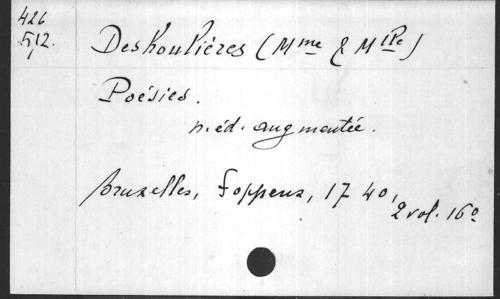 426
512.
1
Deshoulières (Mme & Mlle)
Poésies.
n. éd. augmentée.
Bruxelles, Foppens, 1740,
2 vol. 16°